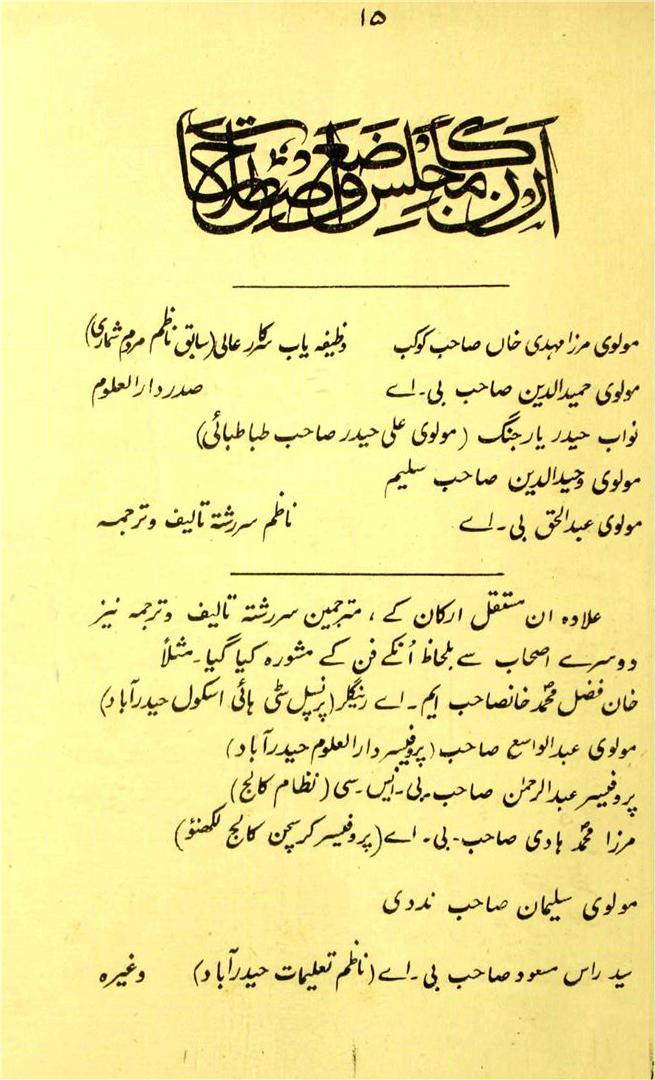 ۱۵
ارکان مجلس وضع اصطلاحات
مولوی مرزا مہدی خاں صاحب کوکب وظیفہ یاب سرکار عالی (سابق ناظم مردم شماری)
مولوی حمید الدین صاحب بی۔اے صدر دار العلوم
نواب حیدر یار جنگ (مولوی علی حیدر صاحب طباطبائی)
مولوی وحید الدین صاحب سلیم
مولوی عبد الحق بی۔اے ناظم سررشتۂ تالیف و ترجمہ
علاوہ ان مستقل ارکان کے، مترجمین سررشتۂ تالیف و ترجمہ نیز
دوسرے اصحاب سے بلحاظ اُنکے فن کے مشورہ کیا گیا۔ مثلاً
خان فضل محمد خانصاحب ایم۔اے رینگلر (پرنسپل سٹی ہائی اسکول حیدرآباد)
مولوی عبد الواسع صاحب (پروفیسر دار العلوم حیدرآباد)
پروفیسر عبد الرحمٰن صاحب۔بی۔ایس۔سی (نظام کالج)
مرزا محمد ہادی صاحب۔بی۔اے (پروفیسر کرسچن کالج لکھنؤ)
مولوی سلیمان صاحب ندوی
سید راس مسعود صاحب بی۔اے (ناظم تعلیمات حیدرآباد) وغیرہ